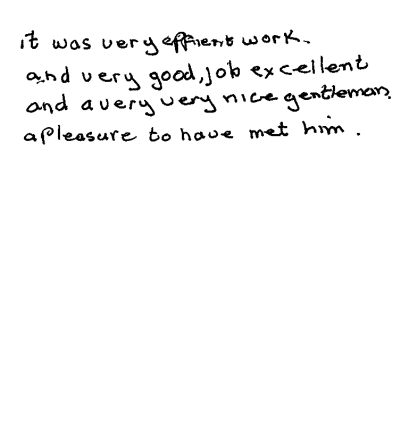 it was very effient work.
and very good, job excellent
and a very very nice gentleman.
a pleasure to have met him.